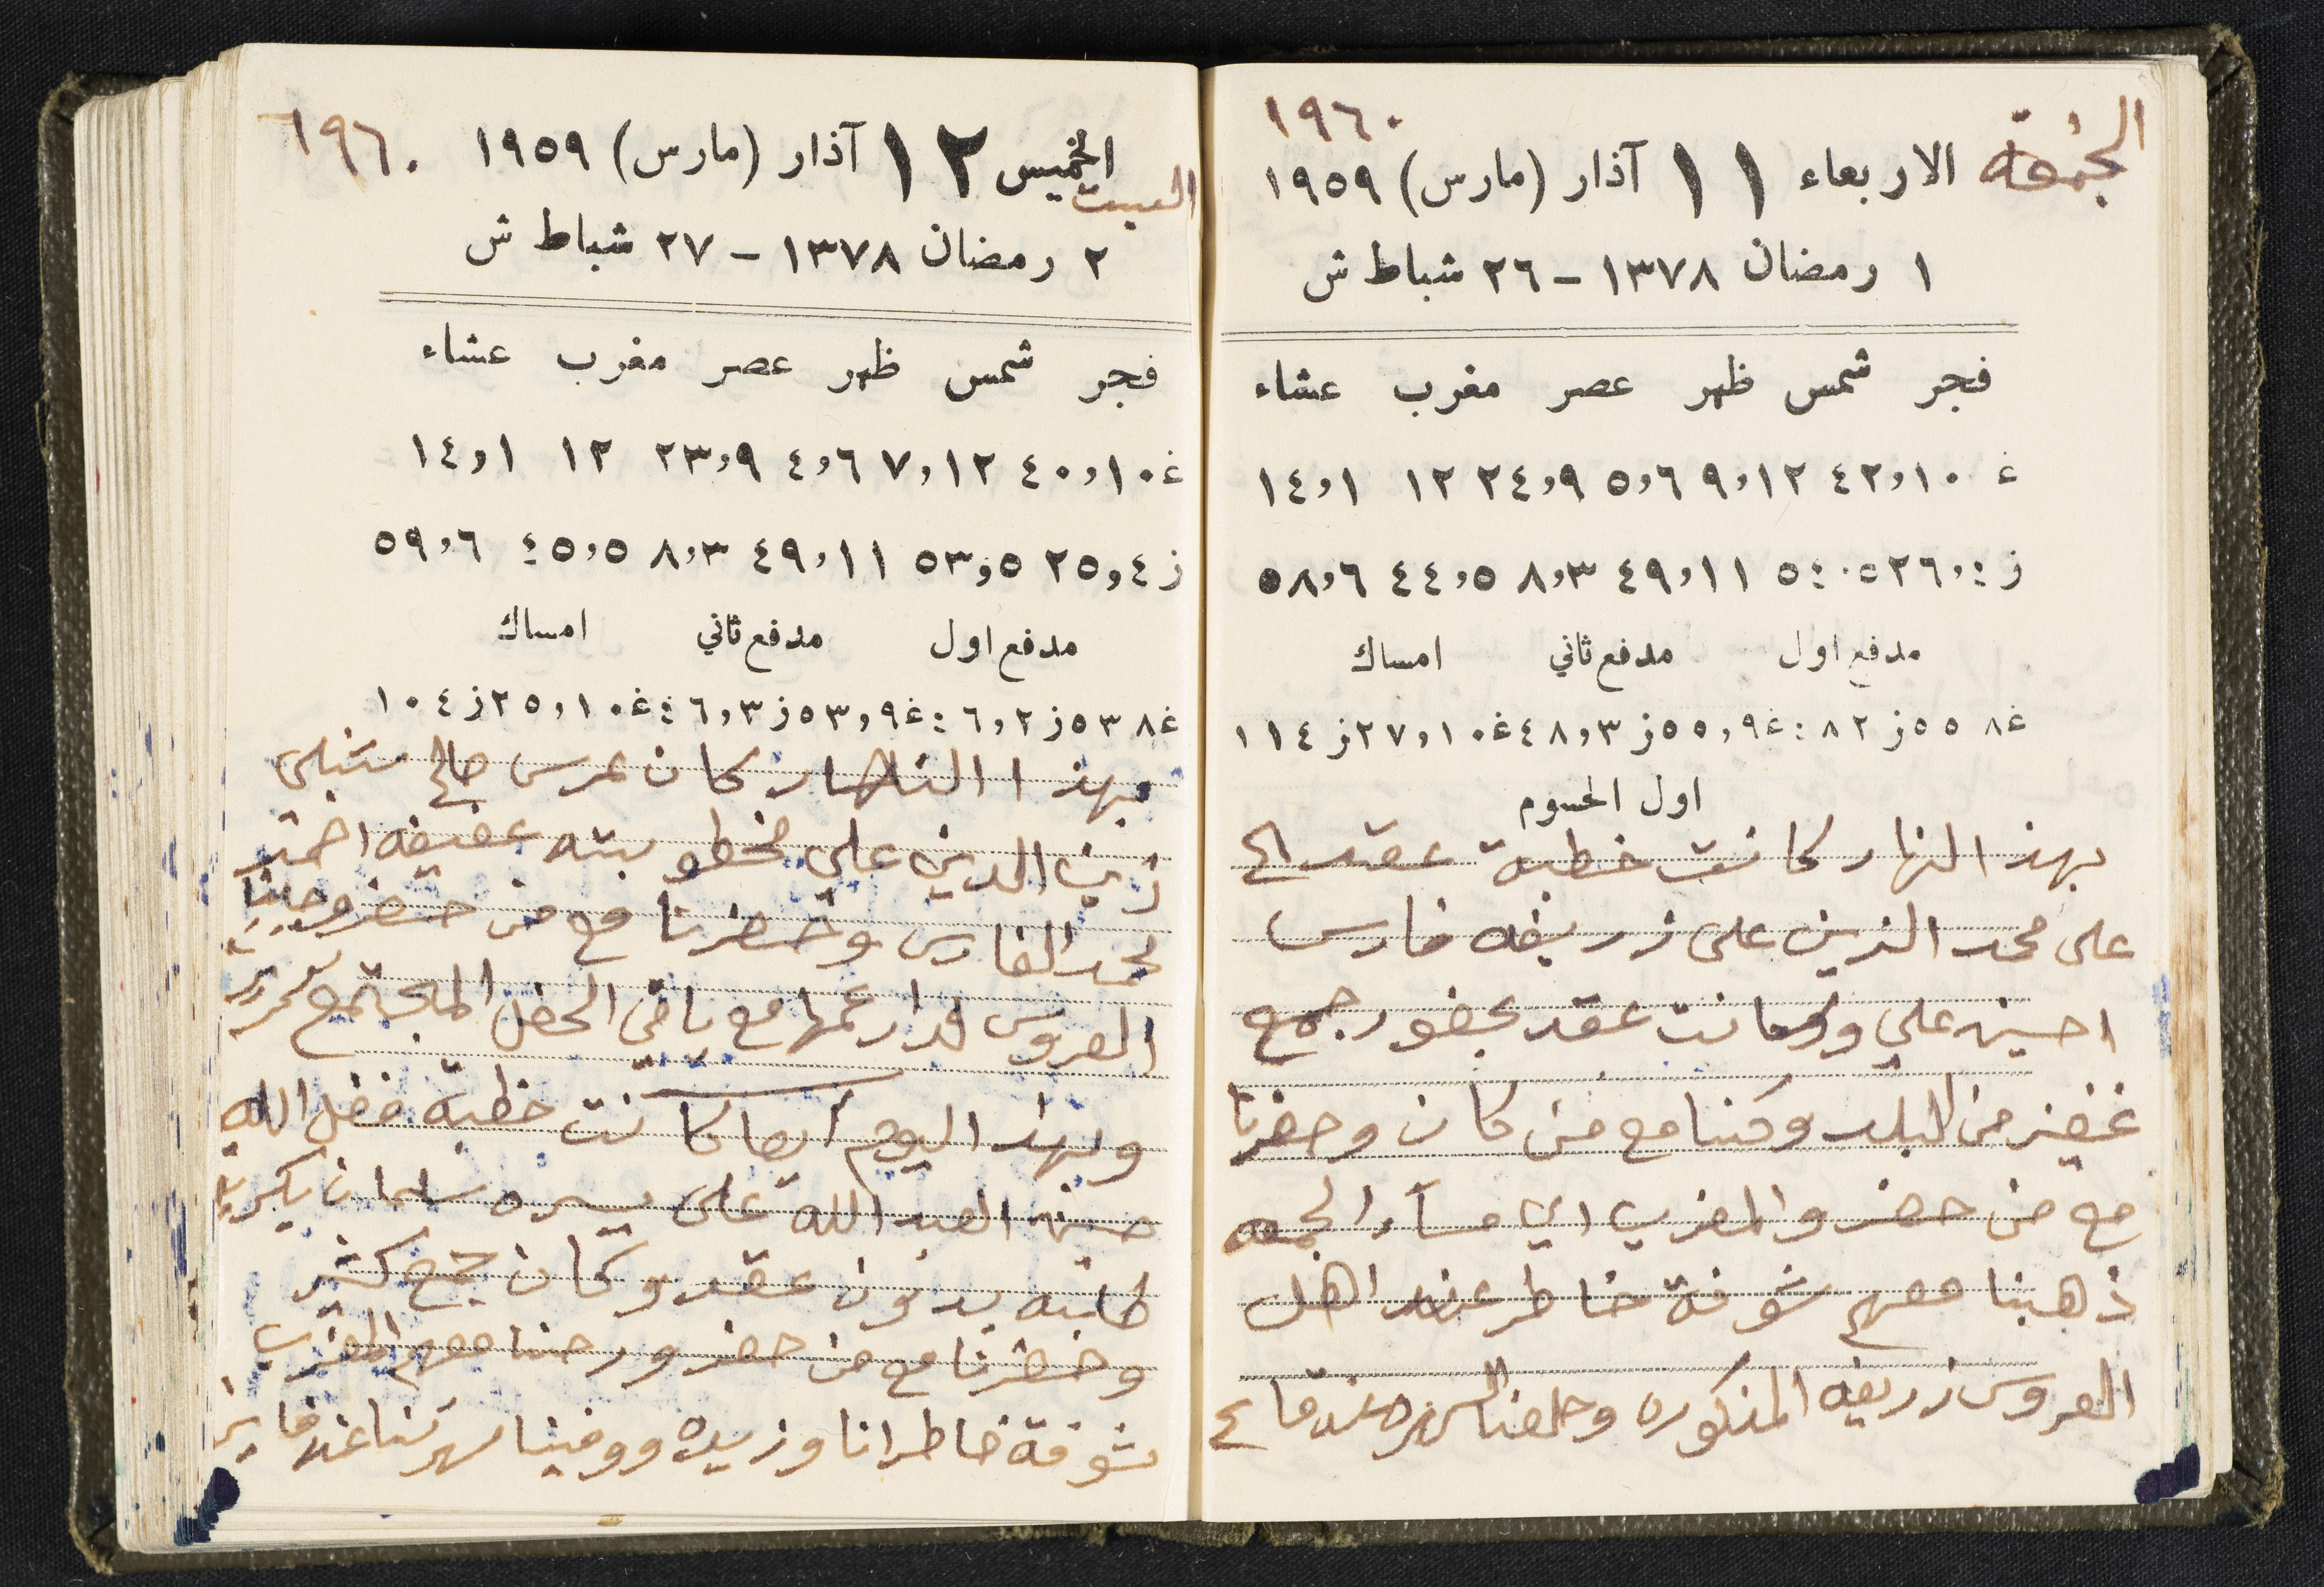 ١٩٦٠
الجُمعة الاربعاء ١١ آذار (مارس) ١٩٥٩
١ رمضان ١٣٧٨ - ٢٦ شباط ش
فجر شمس ظهر عصر مغرب عشاء
غ ١٠,٤٢ ١٢,٩ ٦,٥ ٩,٢٤ ١٢ ١,١٤
ز ٤,٢٦ ٥,٥٤ ١١,٤٩ ٣,٨ ٥,٤٤ ٦,٥٨
مدفع اول مدفع ثاني امساك
غ ٨ ٥٥ ز ٢ ٨٤ غ ٩,٥٥ ز ٣,٤٨ غ ١٠,٢٧ ز ٤ ١١
اول الحسوم
بهذ النهار كانت خطبة عقد
على محمد الزين على زريفه فارس
احسين علي وكانت عقد بحضور جمع
غفير من البلد وكنا مع من كان وحضرنا
مع من حضر والمغرب اي مساء الجمعه
ذهبنا معهم شوفة خاطر عند اهل
العروس زريفه المذكوره
الخميس السبت ١٢ آذار (مارس) ١٩٥٩ ١٩٦٠
٢ رمضان ١٣٧٨ - ٢٧ شباط ش
فجر شمس ظهر عصر مغرب عشاء
غ ١٠,٤٠ ١٢,٧ ٦,٤ ٩,٢٣ ١٢ ١,١٤
ز ٤,٢٥ ٥,٥٣ ١١,٤٩ ٣,٨ ٥,٤٥ ٦,٥٩
مدفع اول مدفع ثاني امساك
غ ٨ ٥٣ ز ٢,٤٦ غ ٩,٥٣ ز ٣,٤٦ غ ١٠,٢٥ ز ٤ ١٠
بهذا النهار كان عرس صالح شبلي
زين الدين علي مخطوبته عفيفه احمد
محمد الفارس وحضرنا مع من حضر وجبنا
العروس لدار عمها مع باقي الحفل المجتمع
وبهذ اليوم ايضا كانت خطبة فضل الله
حسن العبد الله على يسره سلمان
طلبه بدون عقد وكان جمع كثير
وحضرنا مع من حضر ورحنا معهم المغرب
شوفة خاطر انا وزيده ووفينا سهرتنا عند فايز